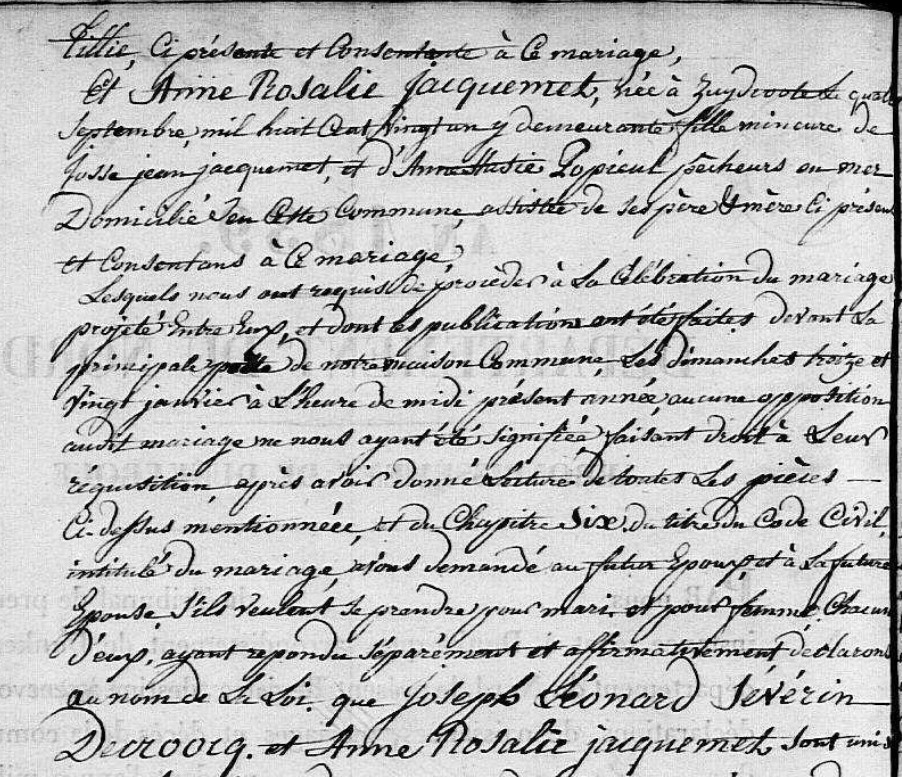 fillie, Ci présente et Consentante à Ce mariage,
Et Anne Rosalie Jacquemet, née à Zuydcoote le quatre
Septembre, mil huit Cent vingt un y demeurante fille mineure de
Josse jean jacquemet, et d'Anne Popieul pêcheurs en mer
Domicilié's en Cette Commune assistée de ses père & mère Ci présens
et Consentans à Ce mariage,
Lesquels nous ont requis de procèder à La Célébration du mariage
projeté Entre Eux, et dont les publications ont été faites devant La
principale porte de notre maison Commune, Les dimanches treize et
Vingt janvier à L'heure de midi présent année, aucune opposition
audit mariage ne nous ayant été signifiée, faisant droit à Leur
requisition, après avoir donné Lecture de toutes Les pièces —
Ci-dessus mentionnéee, et du Chapitre Six, du titre du Code Civil,
intitulé du mariage, avons demandé au futur Epoux et à La future
Epouse, S'ils veulent se prendre pour mari, et pour femme, Chacun
D'eux, ayant repondu séparèment et affirmativement, declarons
au nom de La Loi, que Joseph Léonard Sévérin
Decroocq. et Anne Rosalie jacquemet, sont unis